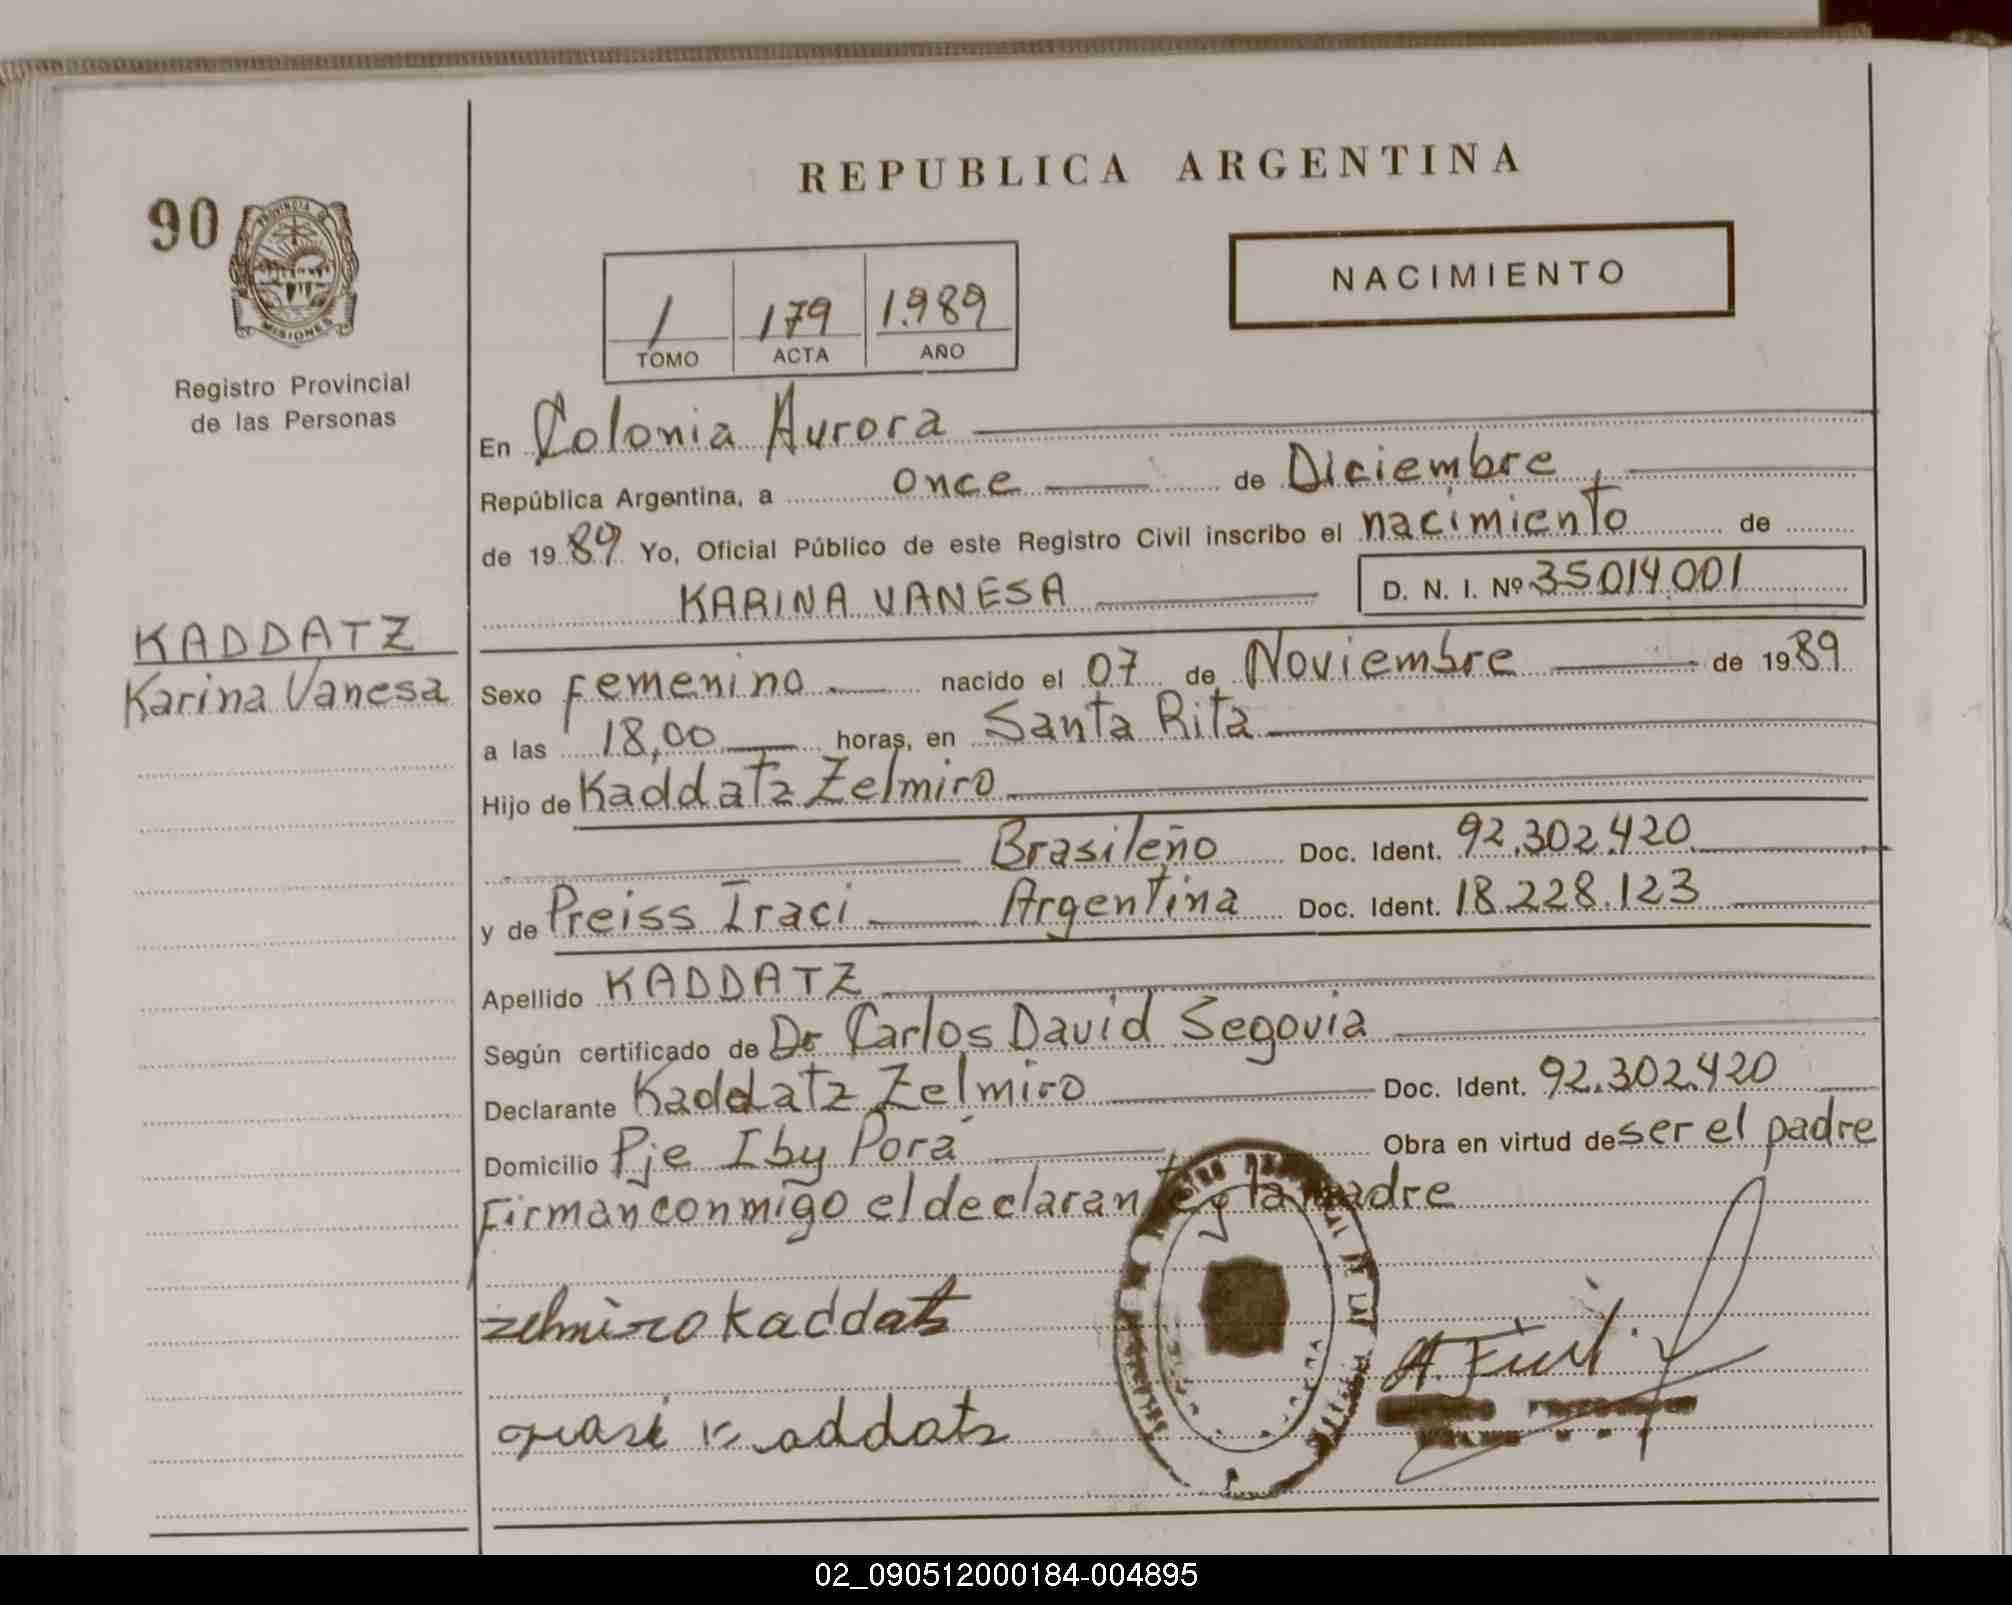 REPUBLICA ARGENTINA
90
PROVINCIA DE
MISIONES
Registro Provincial
de las Personas
1 179 1.989
TOMO ACTA AÑO
NACIMIENTO
En Colonia Aurora
República Argentina, a once de Diciembre,
de 1989 Yo, Oficial Público de este Registro Civil inscribo el nacimiento de
KARINA VANESA D. N. I. Nº 35014.001
KADDATZ
Karina Vanesa
Sexo Femenino nacido el 07 de Noviembre de 1989
a las 18,00 horas, en Santa Rita
Hijo de Kaddatz Zelmiro
Brasileño Doc. Ident. 92.302.420
y de Preiss Iraci Argentina Doc. Ident. 18.228.123
Apellido KADDATZ
Según certificado de Dr Carlos David Segovia
Declarante Kaddatz Zelmiro Doc. Ident. 92.302.420
Domicilio Pje Iby Porá Obra en virtud de ser el padre
Firman conmigo el declarante y la madre
zelmiro kaddatz
kaddatz
02_090512000184-004895